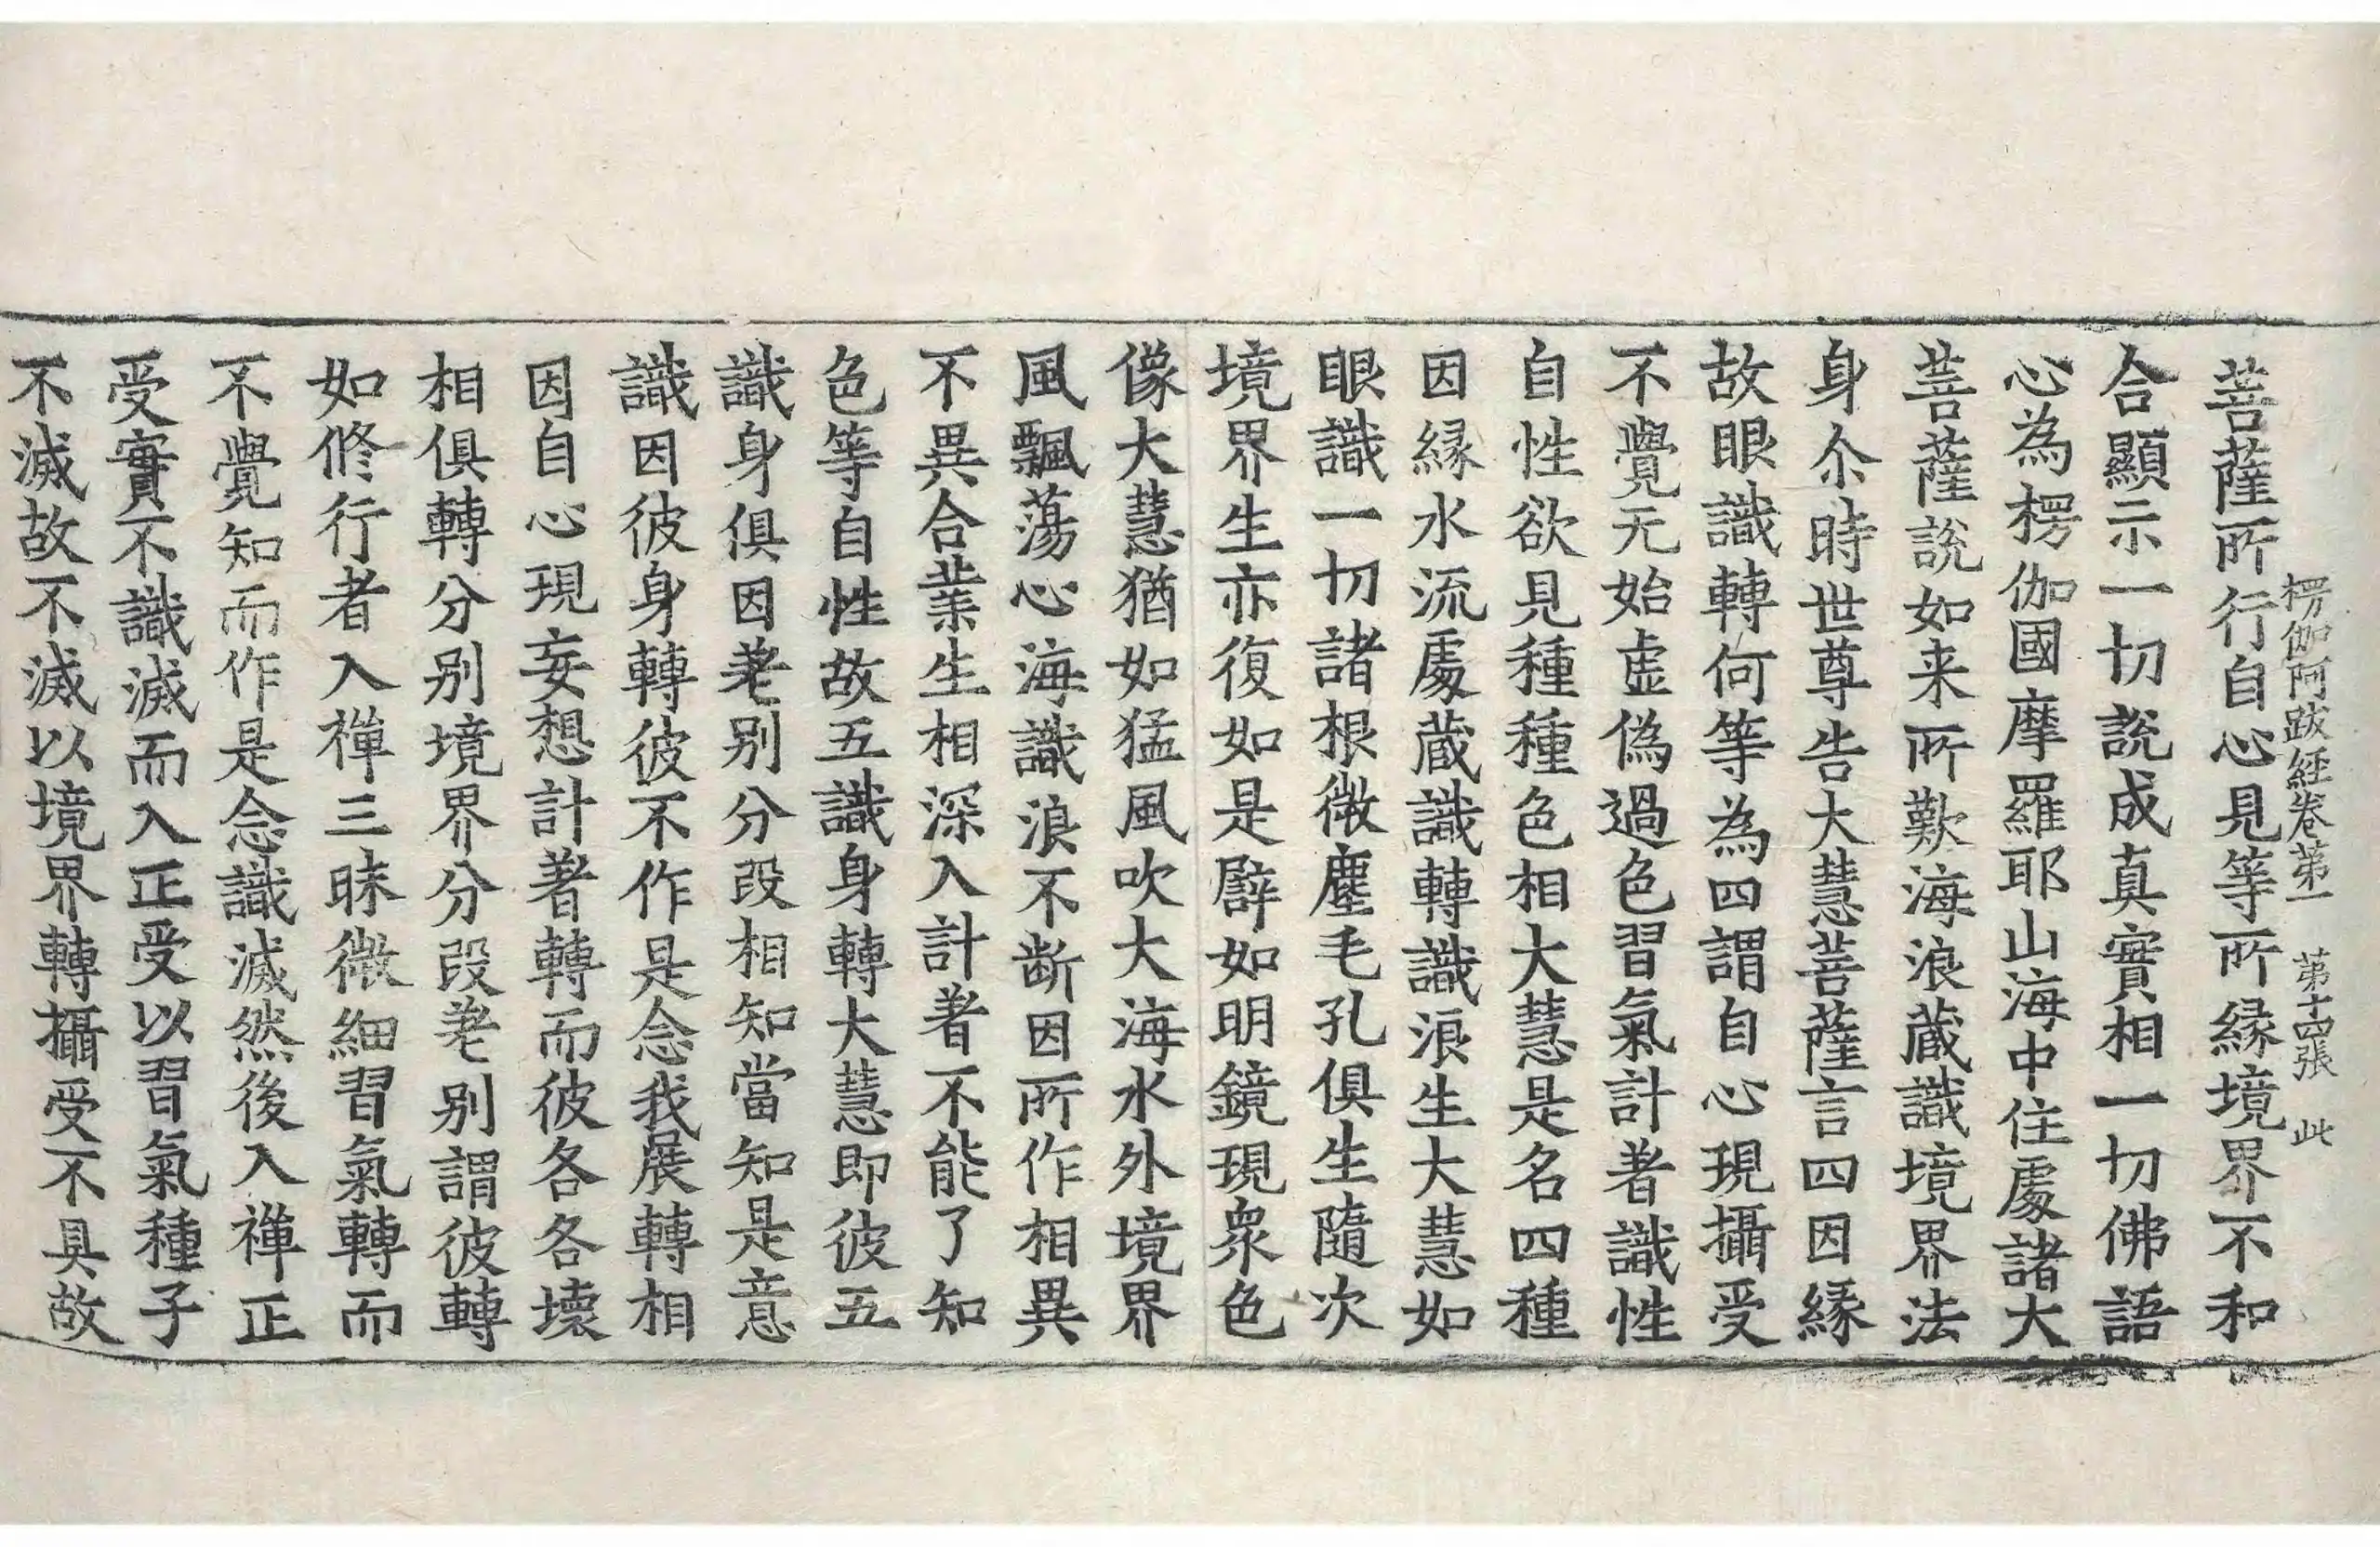 楞伽阿跋経卷苐一　苐十四張　此
菩薩所行自心見等所縁境界不和
合顯示一切説成真實相一切佛語
心為楞伽國摩羅耶山海中住處諸大
菩薩説如来所歎海浪蔵識境界法
身尒時世尊告大慧菩薩言四因縁
故眼識轉何等為四謂自心現攝受
不覺无始虛偽過色習氣計著識性
自性欲見種種色相大慧是名四種
因縁水流處蔵識轉識浪生大慧如
眼識一切諸根微塵毛孔俱生隨次
境界生亦復如是譬如明鏡現衆色
像大慧猶如猛風吹大海水外境界
風飄蕩心海識浪不断因所作相異
不異合業生相深入計著不能了知
色等自性故五識身轉大慧即彼五
識身俱因差别分段相知當知是意
識因彼身轉彼不作是念我展轉相
因自心現妄想計著轉而彼各各壞
相俱轉分别境界分段差别謂彼轉
如修行者入禪三昧微細習氣轉而
不覺知而作是念識滅然後入禪正
受實不識滅而入正受以習氣種子
不滅故不滅以境界轉攝受不具故